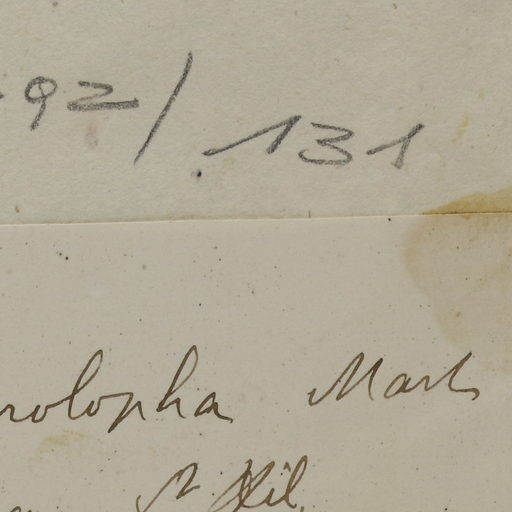 92/131
rolopha Mart
St Hil.